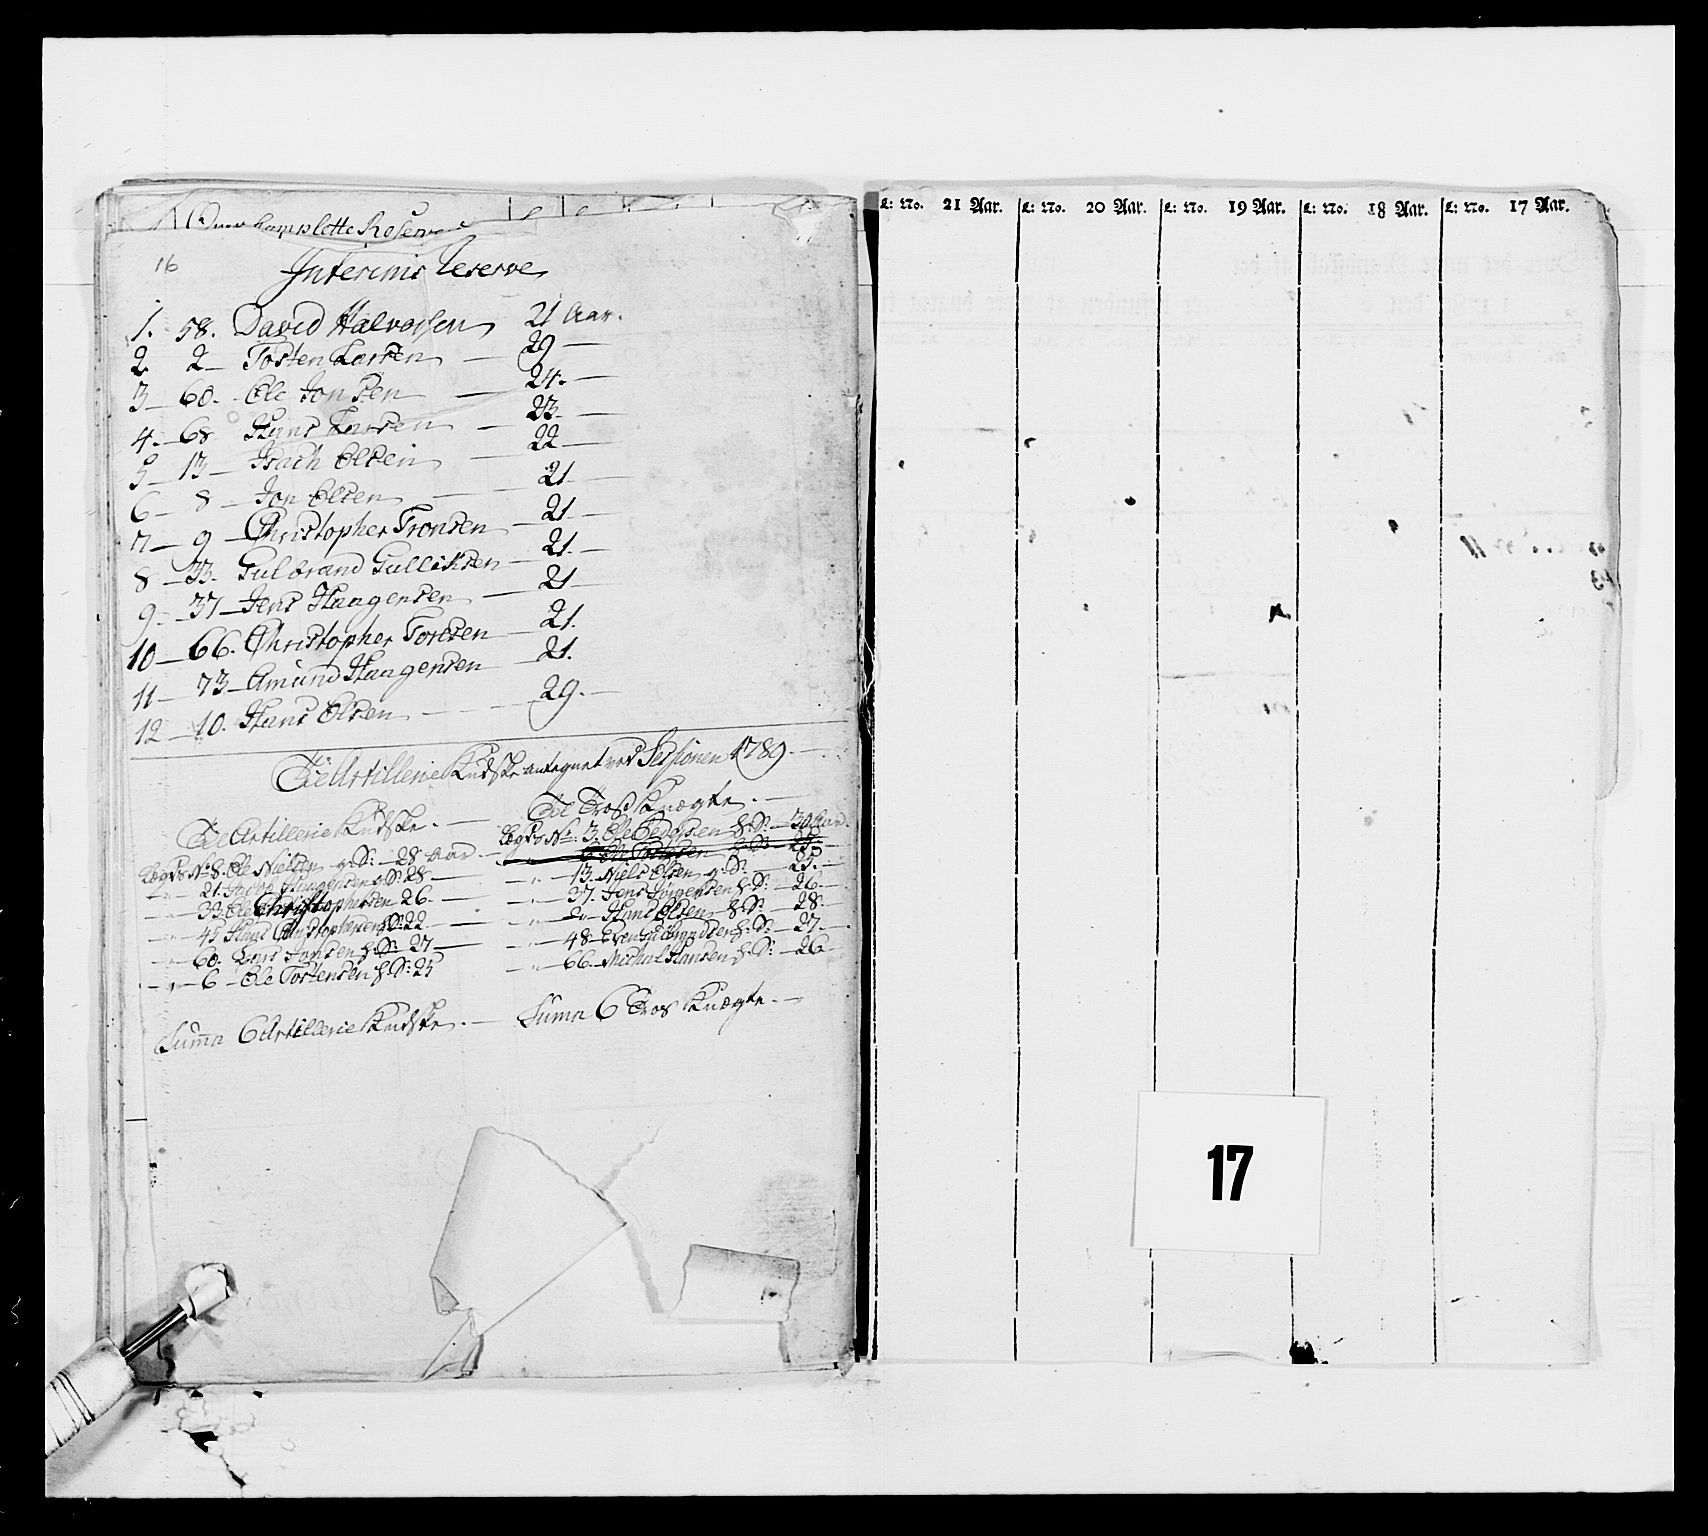 Overkomplette Reserve
16
Interims Reserve
1. 58. David Halvorsen 21 Aar.
2 2 — Tosten Larsen — 29 —
3 — 60. Ole Jonsen — 24. —
4. — 68 Hans Larsen — 23. —
5 — 13 — Isach Olsen — 22 —
6 — 8 — Jon Olsen — 21 —
7 — 9 — Christopher Tronsen — 21 —
8 — 33. Gulbrand Gulliksen — 21. —
9. — 37 — Jens Haagensen — 21 —
10 — 66. Christopher Toresen — 21.
11 — 73 — Amund Haagensen — 21.
12 — 10. Hans Olsen — 29. —
Til Artillerie Kudske antegnet ved Sessionen 1789. —
Til Artillerie Kudske. —
Lægds No 8. Ole Nielsen g: S: — 28 Aar —
— " — 21. Jacob Haagensen g: S: 28 —
— " — 33. Ole Christophersen 26. —
— " — 45 Hans Christophersen S: 22 —
— " — 60. Lars Jonsen S: 27 —
— " — 6 — Ole Tostensen S: 25
Suma 6 Artillerie Kudske. —
Til Tros Knægte. —
Lægds No: 3. Ole Pedersen S: — 30 Aar.
6 Ole Tostensen S: 25 —
— " — 13. Niels Olsen g: S: — 25. —
— " — 37. Jens Jørgensen S: — 26 —
— " — Do — Hans Olsen S: — 28 —
— " — 48 — Even Gulbrandsen S: — 27. —
— " — 66. Michel Hansen S: — 26
Suma 6 Tros Knægte. —
L: No. 21 Aar. L: No. 20 Aar. L: No. 19 Aar. L: No. 18 Aar. L: No. 17 Aar.
17